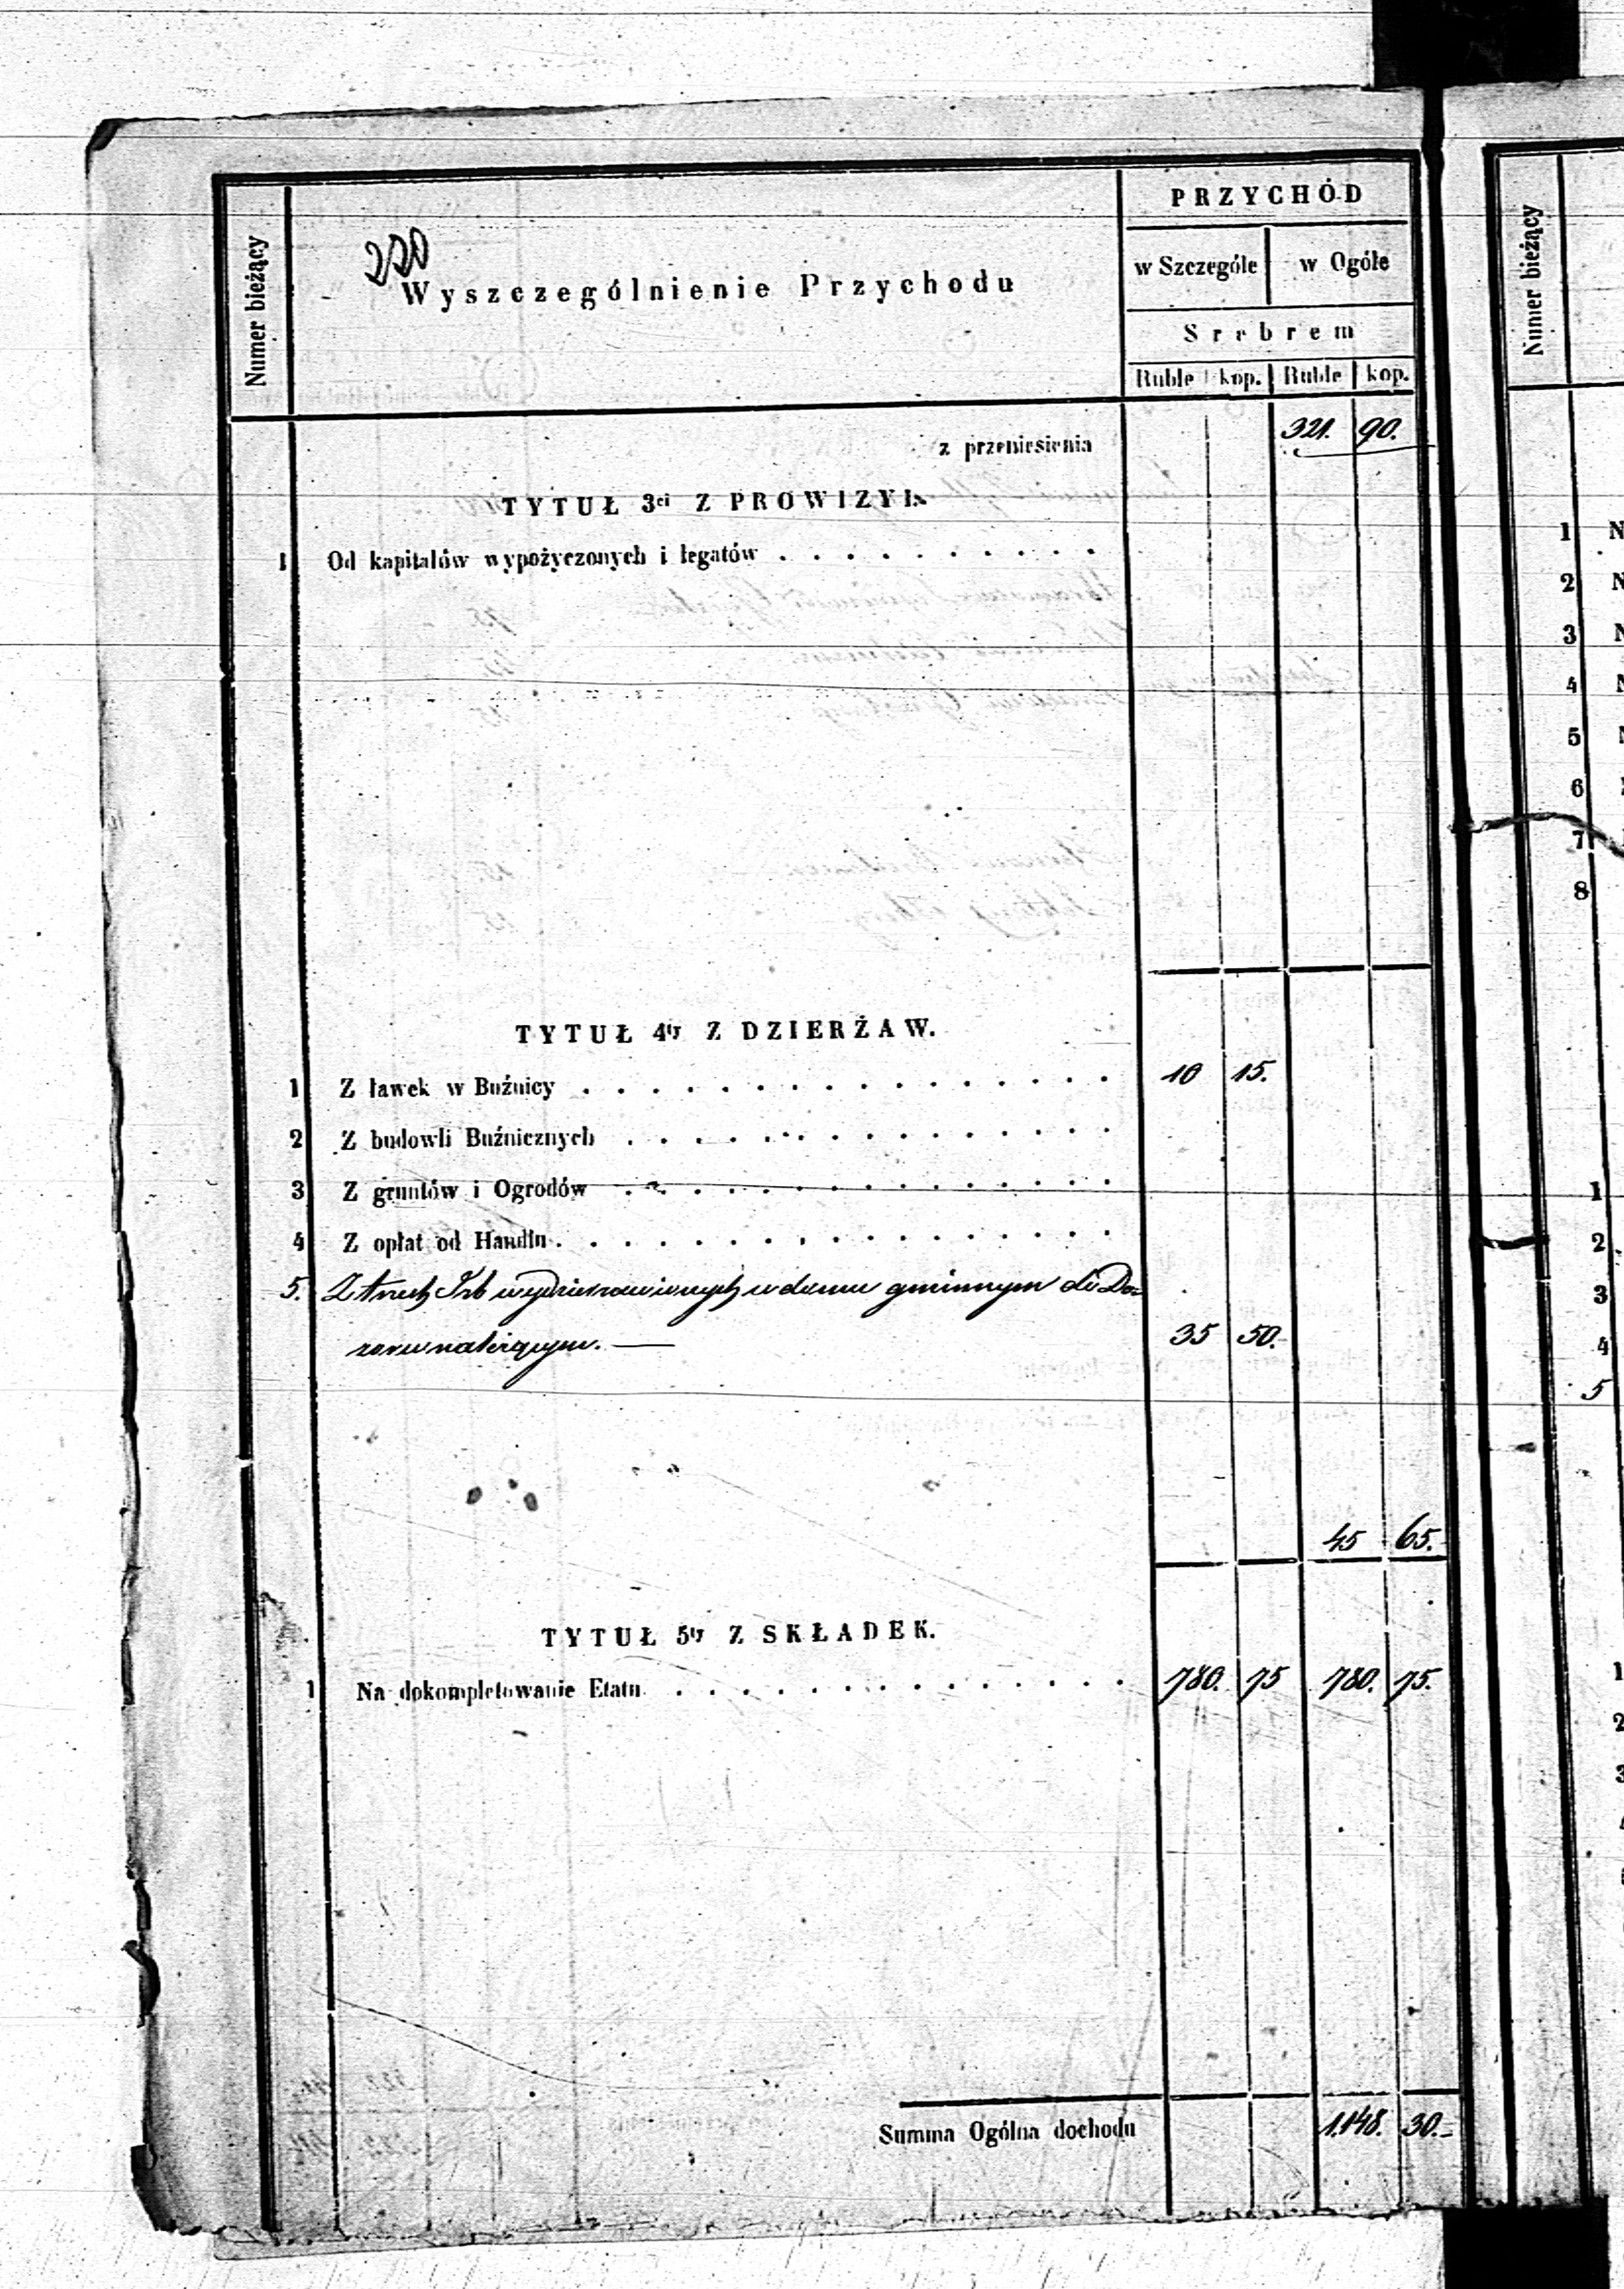 220
Numer bieżący
Wyszczególnienie Przychodu
PRZYCHÓD
w Szczególe w Ogóle
Srebrem
Ruble kop. Ruble kop.
z przeniesienia 321. 90.
TYTUŁ 3ci Z PROWIZYI.
1 Od kapitałów wypożyczonych i legatów . . . . . . . . . .
TYTUŁ 4ty Z DZIERŻAW.
1 Z ławek w Bużnicy . . . . . . . . . . . . . . . . 10 15.
2 Z budowli Bużnicznych . . . . . . . . . . . . . . .
3 Z gruntów i Ogrodów . . . . . . . . . . . . . . .
4 Z opłat od Handlu . . . . . . . . . . . . . . . . .
5. Z trzech Izb wydzierzawionych w domu gminnym do Do=
zoru należącym. — 35 50.
45 65.
TYTUŁ 5ty Z SKŁADEK.
1 Na dokompletowanie Etatu . . . . . . . . . . . . . . 780. 75 780. 75.
Summa Ogólna dochodu 1.148. 30.-
Numer bieżący
1 N
2 N
3 N
4 N
5
6
7
8
1
2
3
4
5
1
2
3